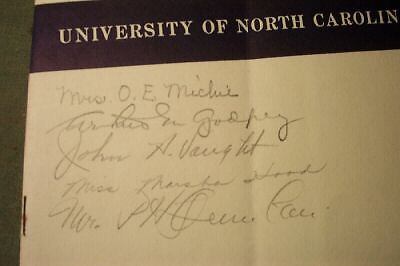 UNIVERSITY OF NORTH CAROLIN
Mrs. O. E. Michie
Godfrey
John H. Vaught
Miss Marsha Hood
Mr. P H